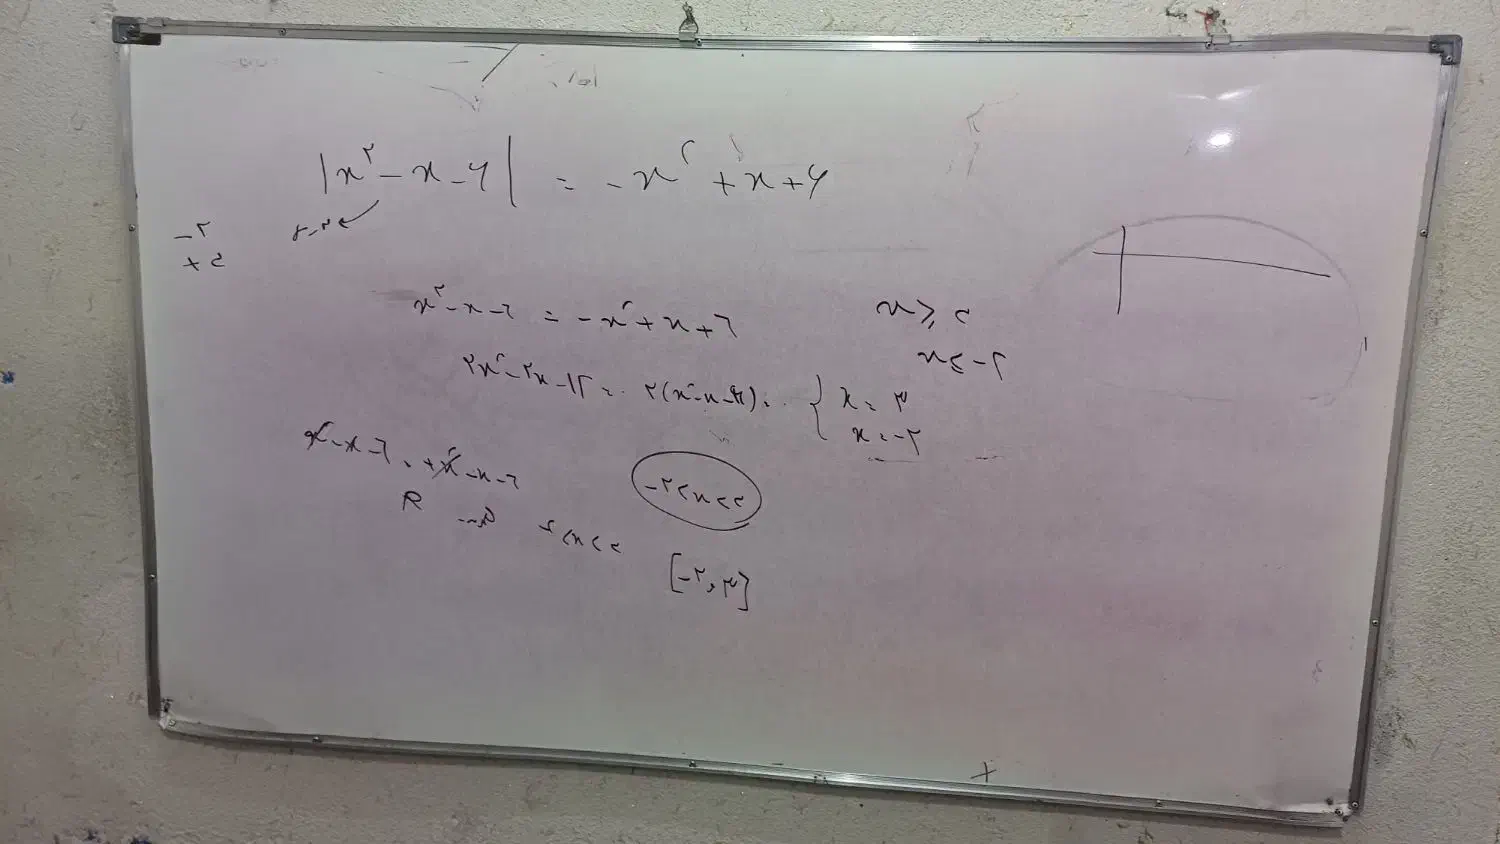 |x² - x - ۶| = -x² + x + ۶
-۲
+۳
x² - x - ۶ = -x² + x + ۶
x ≥ ۳
x ≤ -۲
۲x² - ۲x - ۱۲ = ۰ ۲(x² - x - ۶) = ۰ { x = ۳
x = -۲
x² - x - ۶ = +x² - x - ۶
-۲ < x < ۳
R
-۲ < x < ۳
[-۲, ۳]